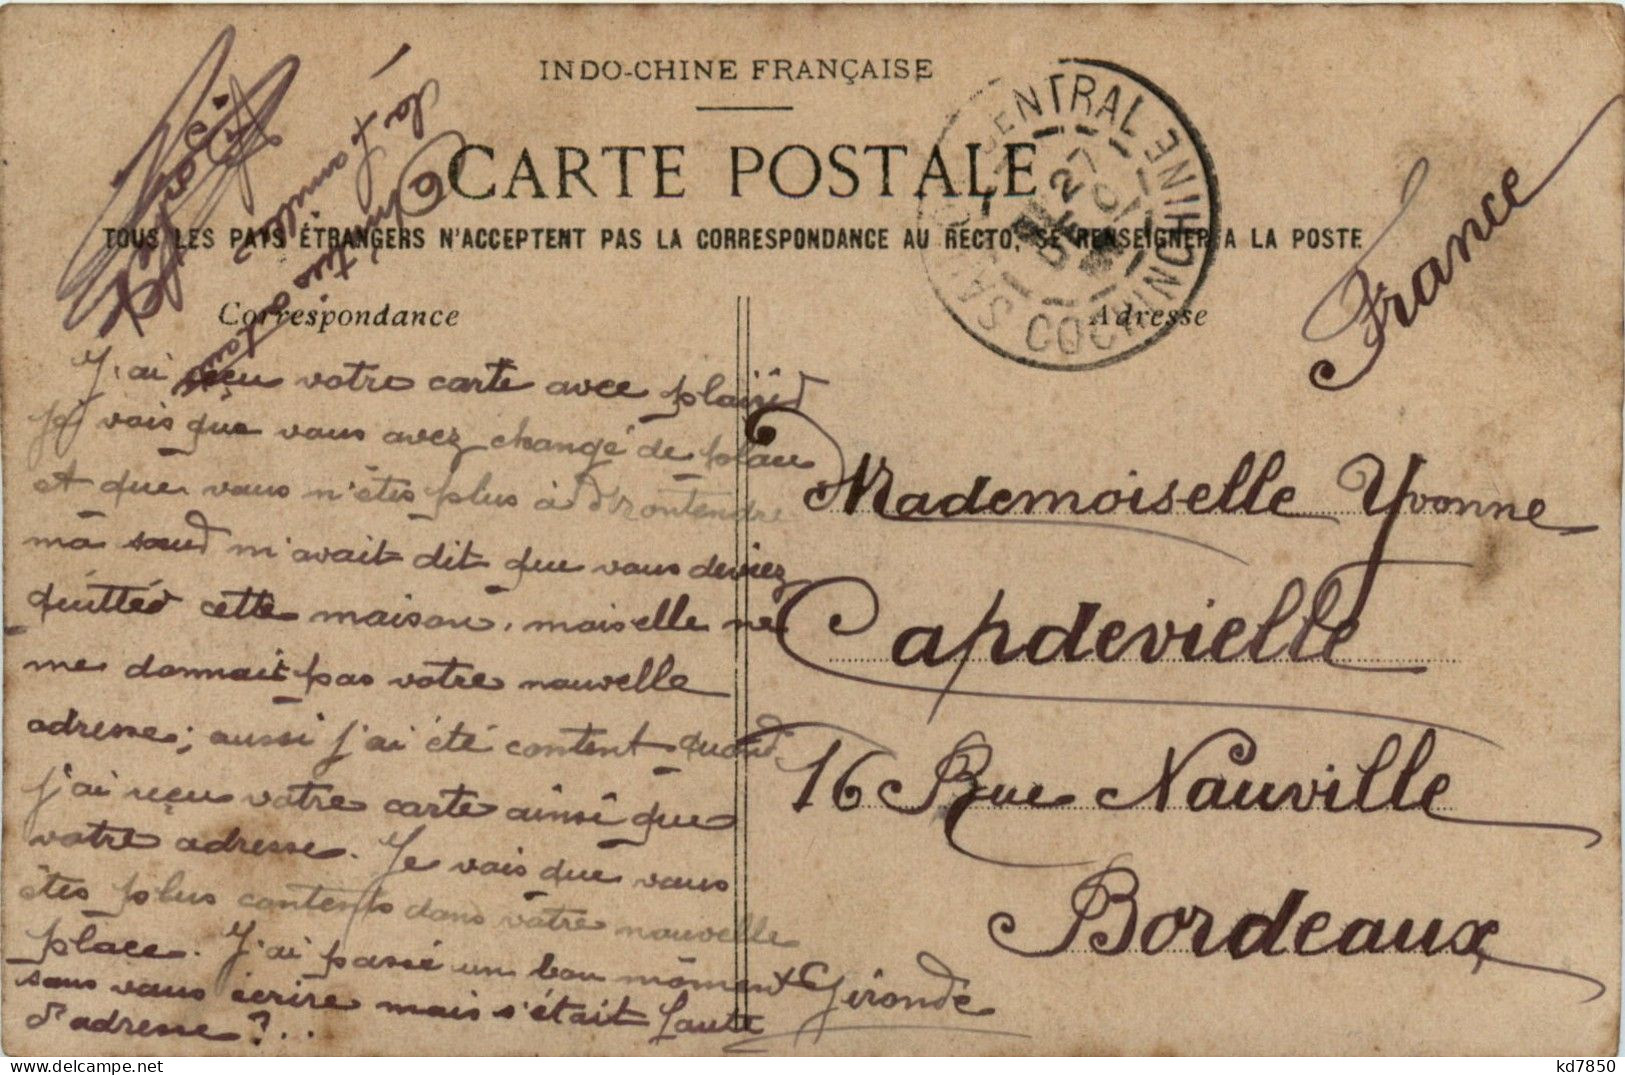 INDO-CHINE FRANÇAISE
CARTE POSTALE
TOUS LES PAYS ÉTRANGERS N'ACCEPTENT PAS LA CORRESPONDANCE AU RECTO, SE RENSEIGNER A LA POSTE
Correspondance
Adresse
CENTRAL
COCHINCHINE
27
France
la famille?
J'ai reçu votre carte avec plaisir
je vois que vous avez changé de place
et que vous n'êtes plus à
ma soeur m'avait dit que vous deviez
quitter cette maison, mais elle ne
me donnait pas votre nouvelle
adresse; aussi j'ai été content quand
j'ai reçu votre carte ainsi que
votre adresse. Je vois que vous
êtes plus contente dans votre nouvelle
place. J'ai passé un bon moment
sans vous écrire mais s'était faute
d'adresse?...
Mademoiselle Yvonne
Capdevielle
16 Rue Nauville
Bordeaux
Gironde
kd7850